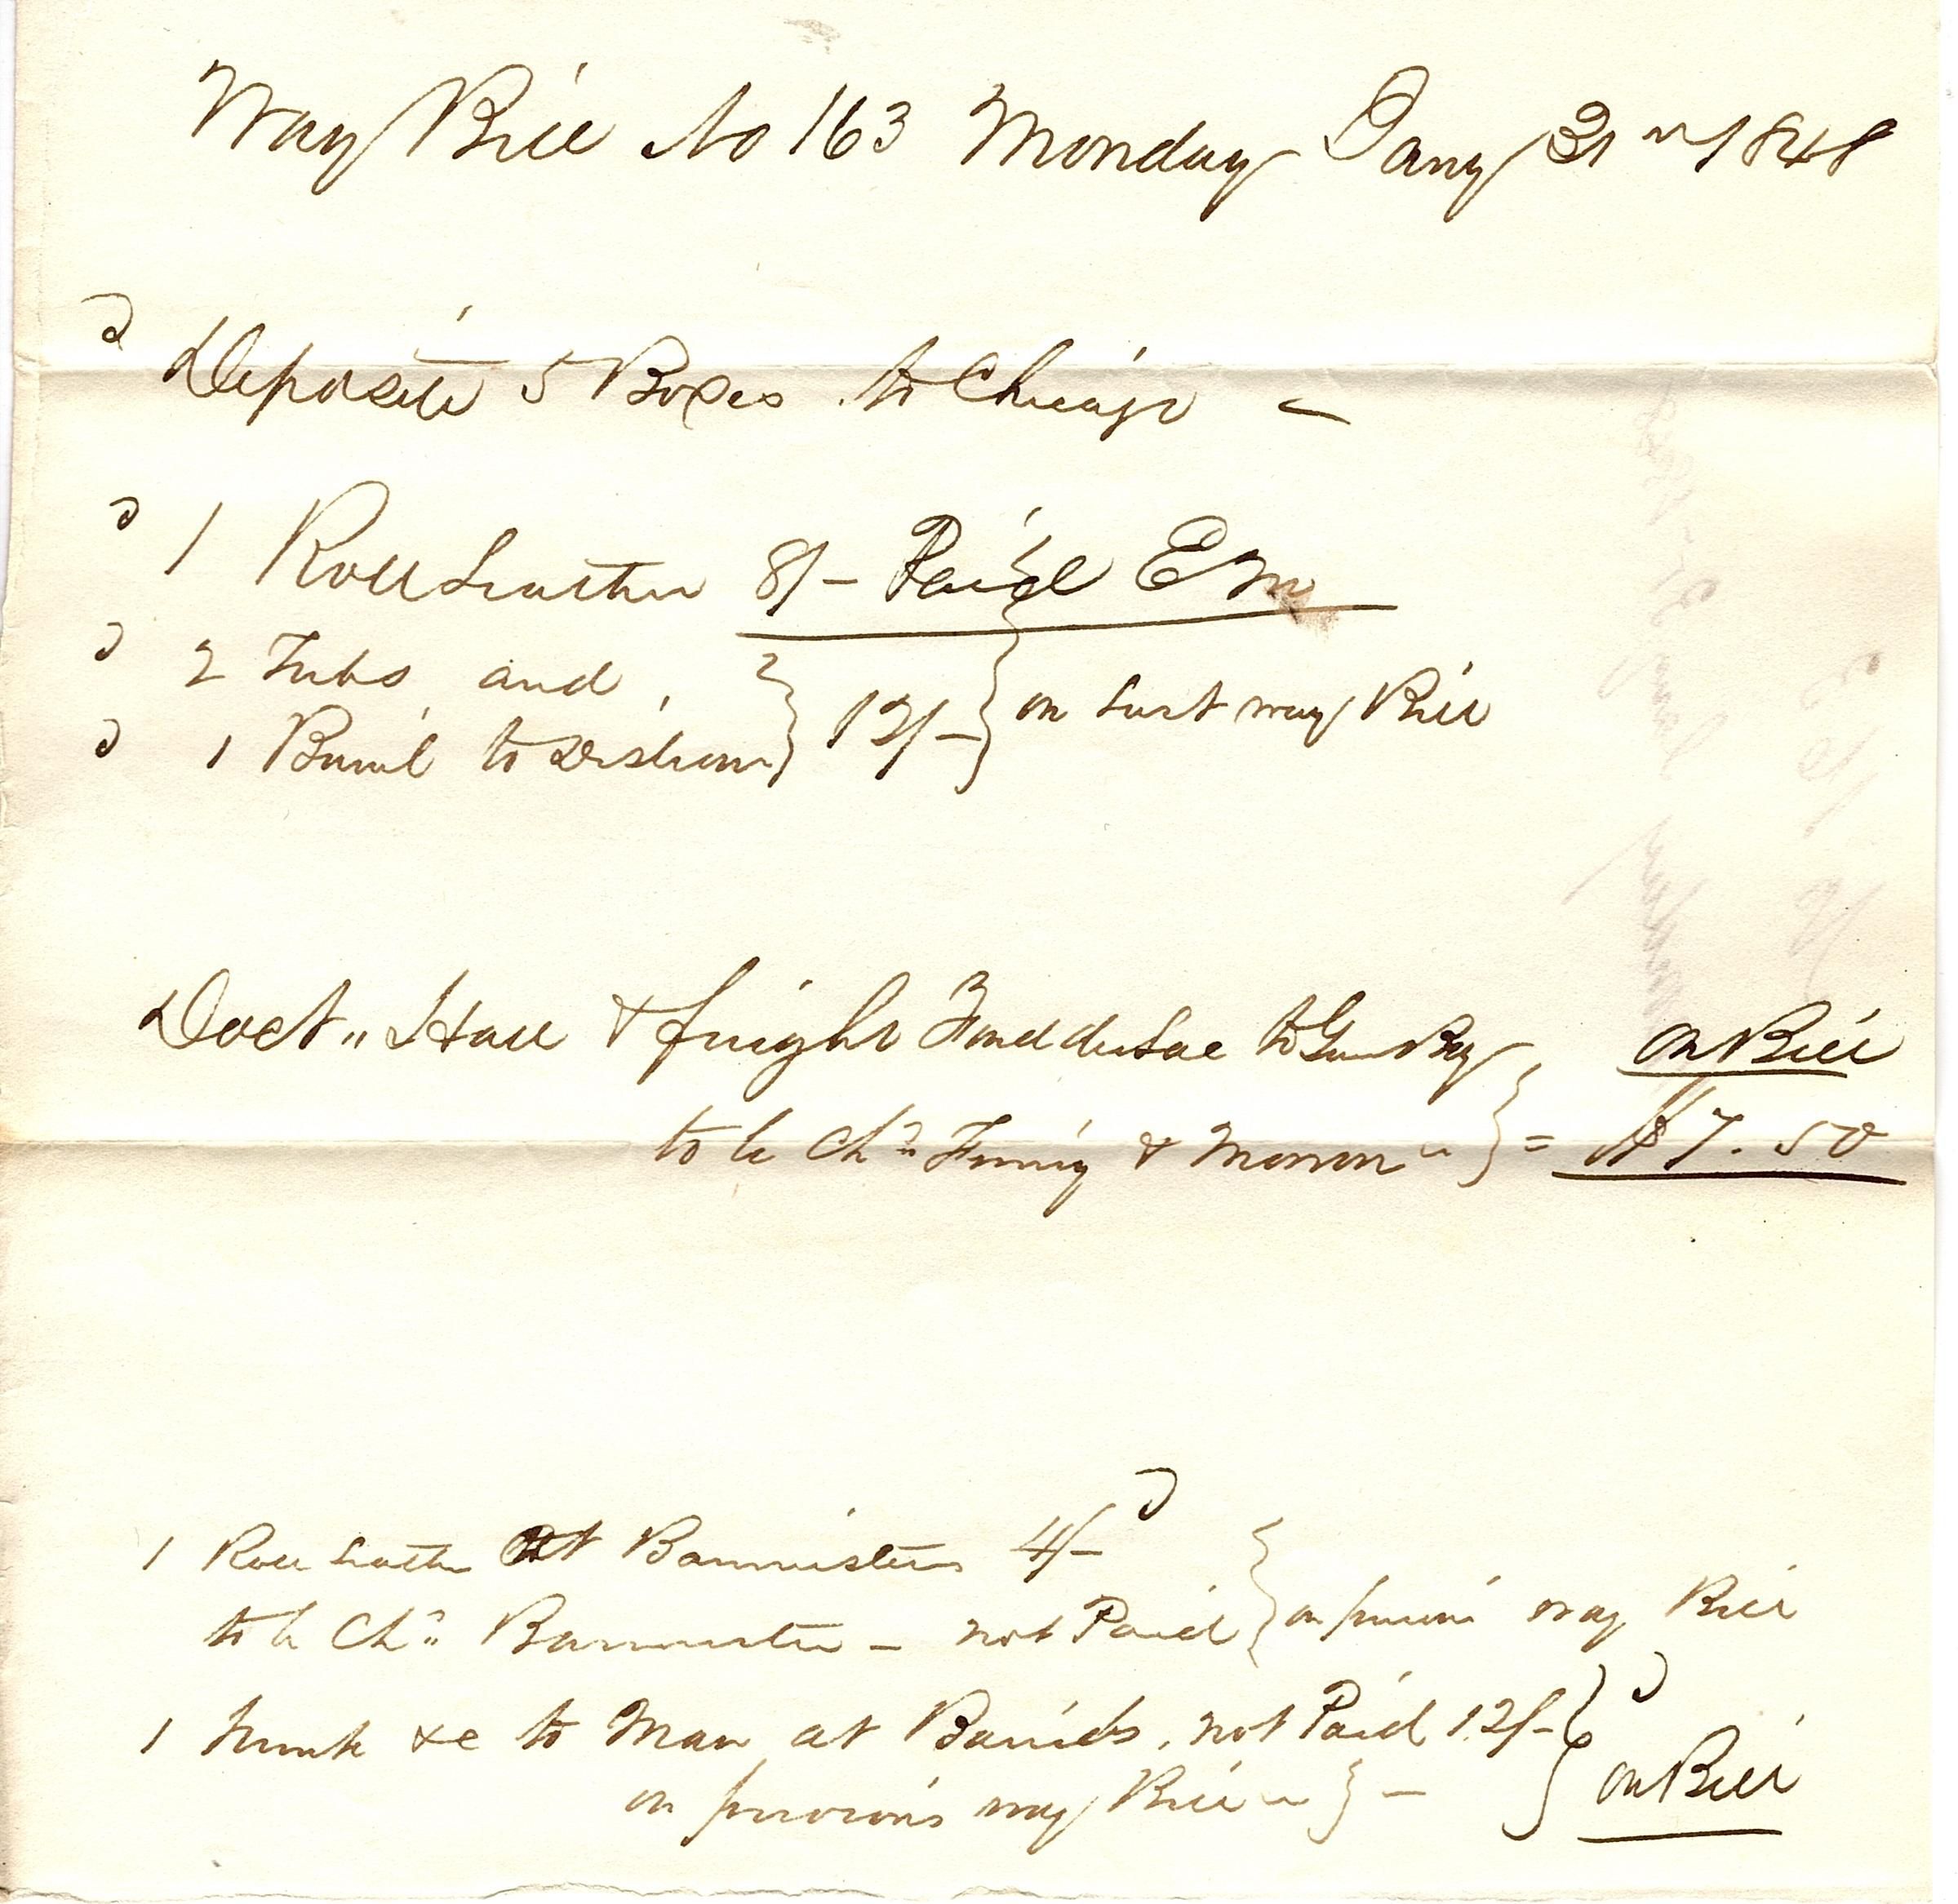 Way Bill No 163 Monday Jany 31 1848
Deposite 5 Boxes to Chicago
1 Roll Leather 8/- Paid EM
2 Tubs and
1 Barrel to 12/- on last way Bill
Doct Hall & freight Fond du Lac to Green Bay on Bill
to be Chd & = $7.50
1 Roll Leather at Bannisters 4/-
to be Chd Bannister - not Paid on previous way Bill
1 Trunk &c to Man at Bairds, not Paid 12/-
on previous way Bill - on Bill